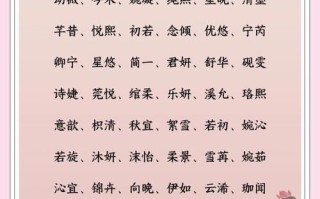 芊昔、悦熙、初若、念倾、优悠、宁芮
卿宁、星悠、简一、君妍、舒华、砚雯
诗婕、莞悦、绾柔、乐妍、溪允、珞熙
意歆、枳清、秋宜、絮雪、若初、婉沁
若旋、沐妍、沫怡、柔景、雪苒、婉茹
沁宜、锦卉、向晚、伊如、云浠、珈闻